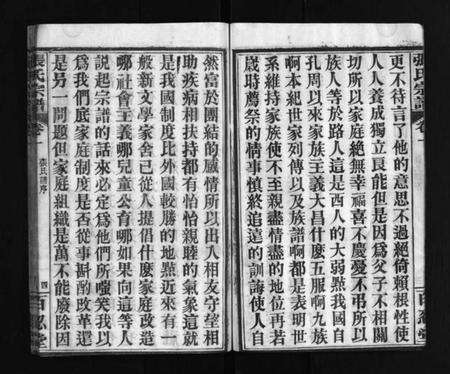 張氏宗譜 卷一
更不待言了他的意思不過絕倚賴根性使
人人養成獨立良能但是因爲父子不相關
切所以家庭絕無幸福喜不慶憂不弔所以
族人等於路人這是西人的大弱點我國自
孔周以來家族主義大昌什麽五服啊九族
啊本紀世家列傳以及族譜啊都是表明世
系維持家族使不至親盡情盡的地位再若
歲時薦祭的情事愼終追遠的訓誨使人自
然富於團結的感情所以出入相友守望相
助疾病相扶持都有怡怡親睦的氣象這就
是我國制度比外國較勝的地點近來有一
般新文學家舍己從人提倡什麽家庭改造
哪社會主義哪兒童公育哪如果向這等人
說起宗譜的話來必定爲他們所嗤笑我以
爲我們底家庭制度是否從事斟酌改革還
是另一問題但家庭組織是萬不能廢除因
張氏宗譜 卷一 張氏譜序 四 百忍堂